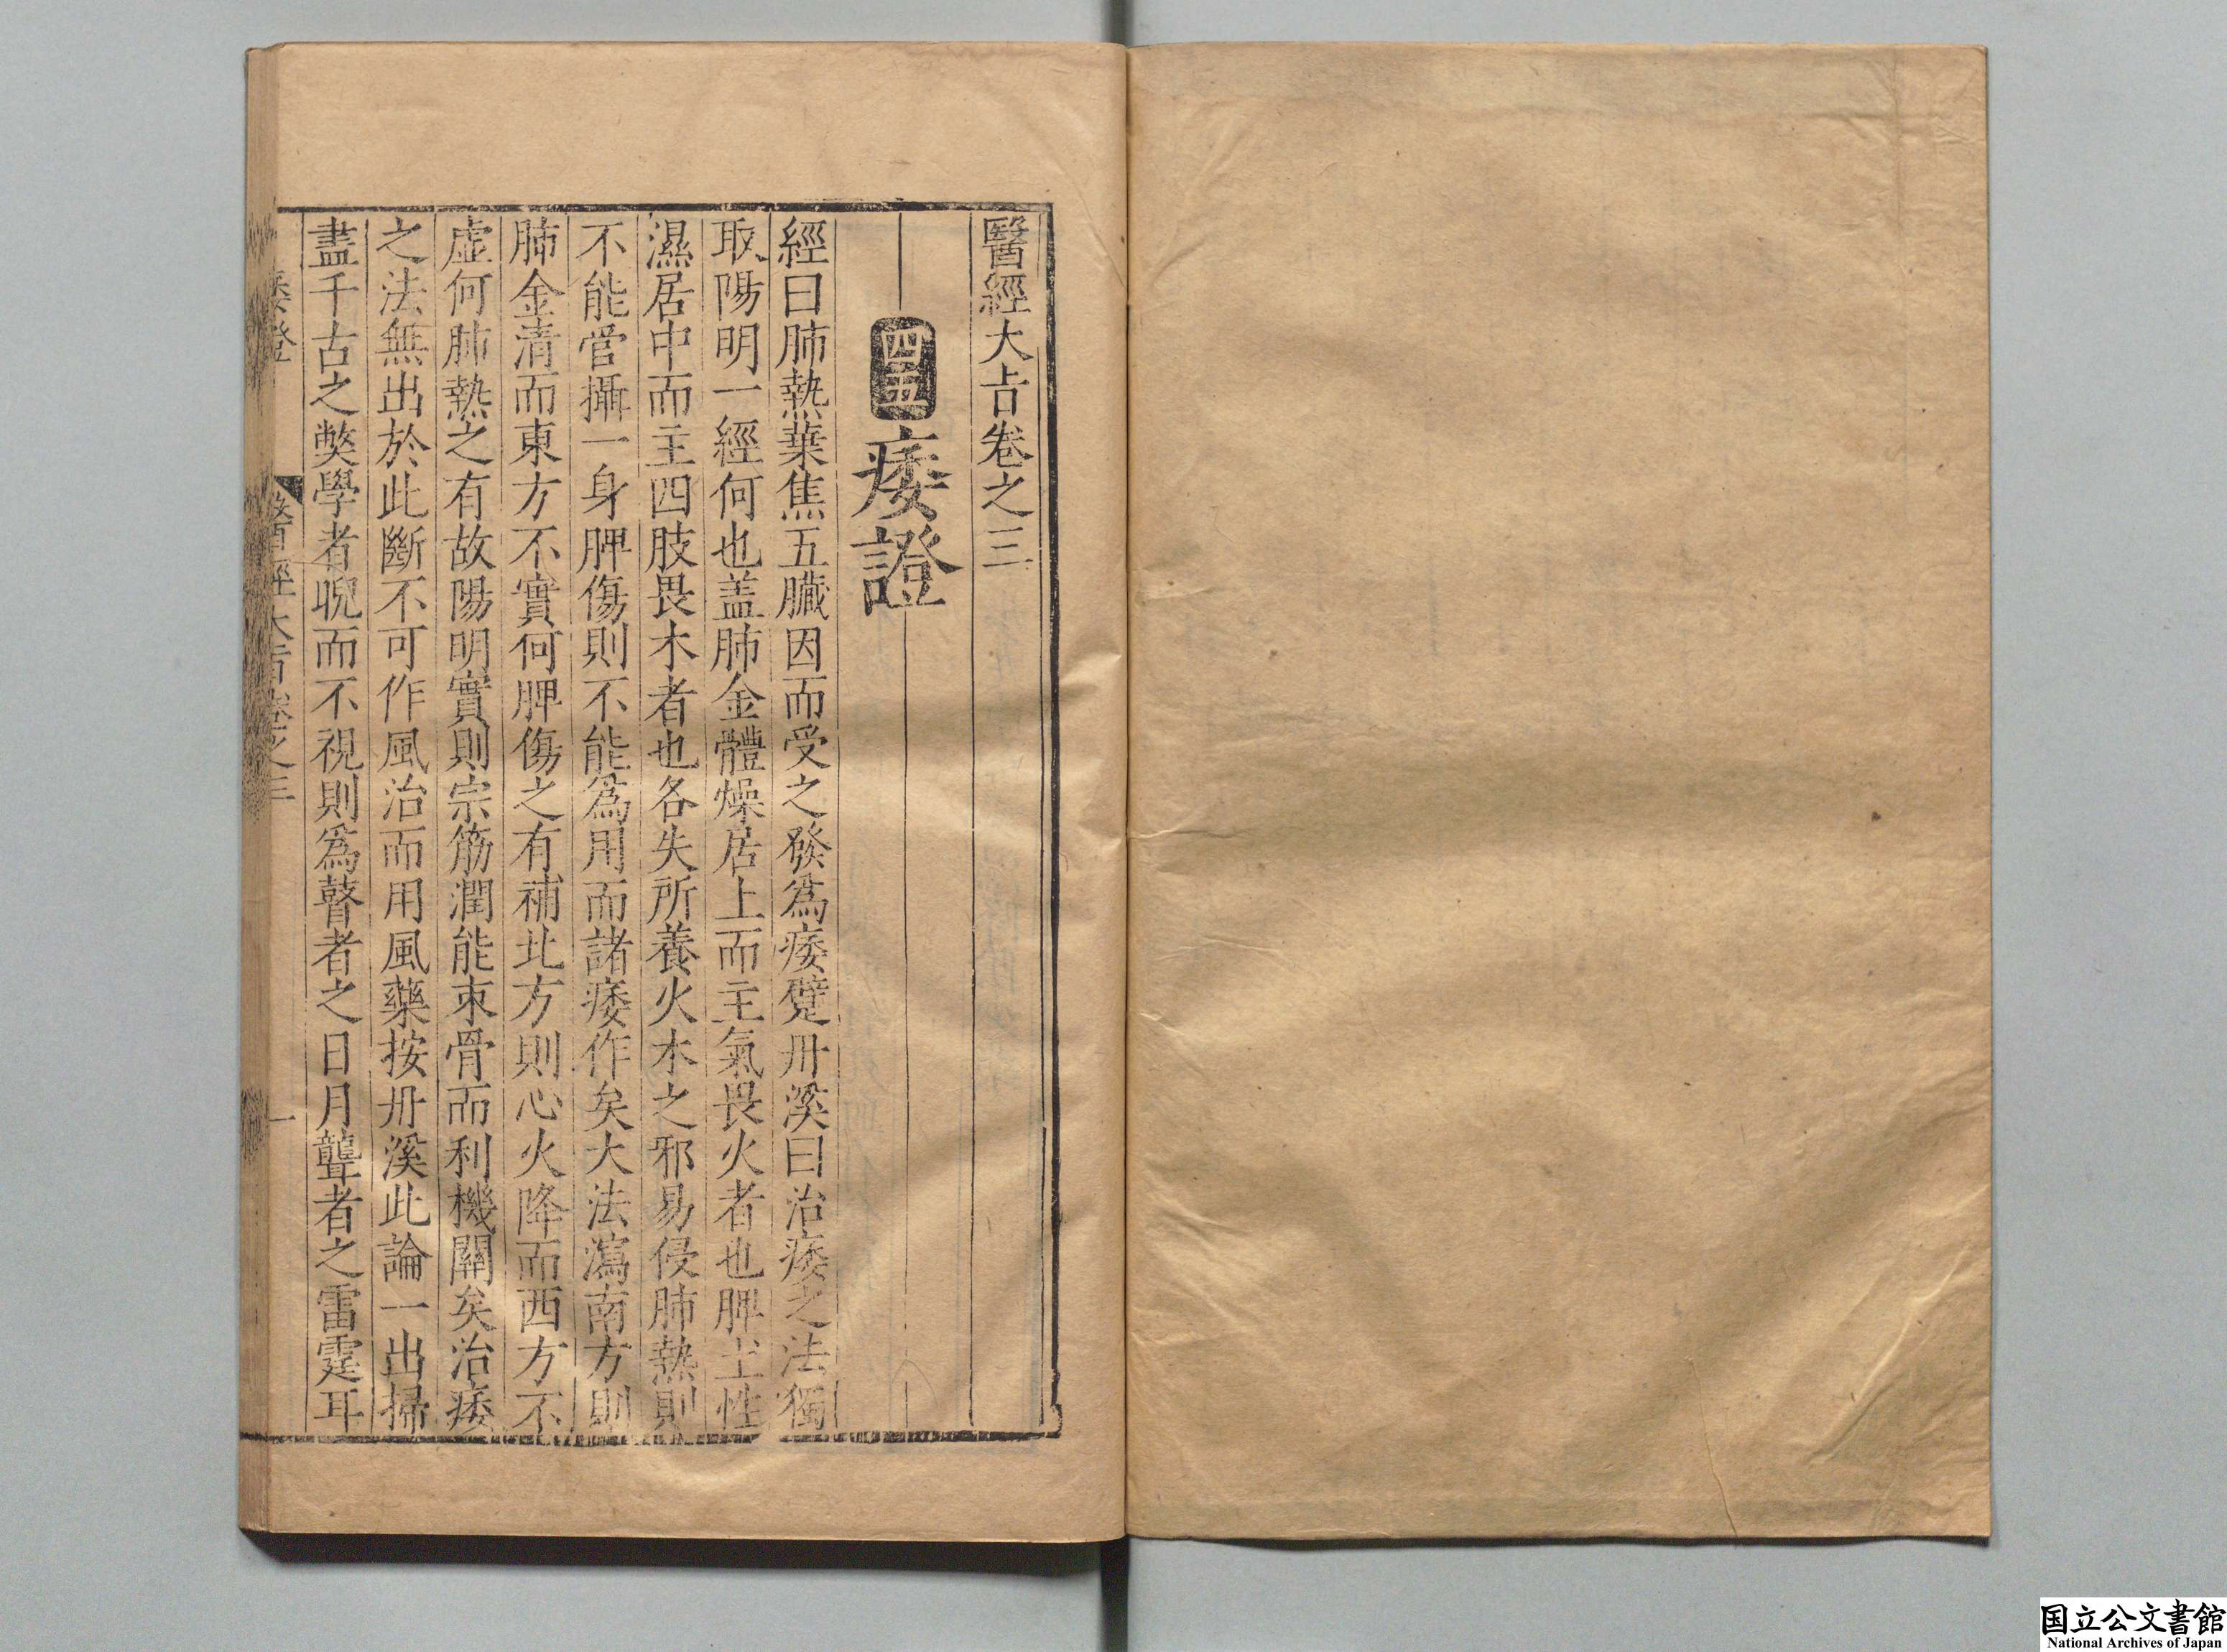 醫經大旨卷之三
四五 痿證
經曰肺熱葉焦五臟因而受之發爲痿躄丹溪曰治痿之法獨
取陽明一經何也盖肺金體燥居上而主氣畏火者也脾土性
濕居中而主四肢畏木者也各失所養火木之邪易侵肺熱則
不能管攝一身脾傷則不能爲用而諸痿作矣大法瀉南方則
肺金清而東方不實何脾傷之有補北方則心火降而西方不
虚何肺熱之有故陽明實則宗筋潤能束骨而利機關矣治痿
之法無出於此斷不可作風治而用風藥按丹溪此論一出掃
盡千古之獘學者睨而不視則爲瞽者之日月聾者之雷霆耳
痿證 醫經大旨卷之三 一
国立公文書館
National Archives of Japan